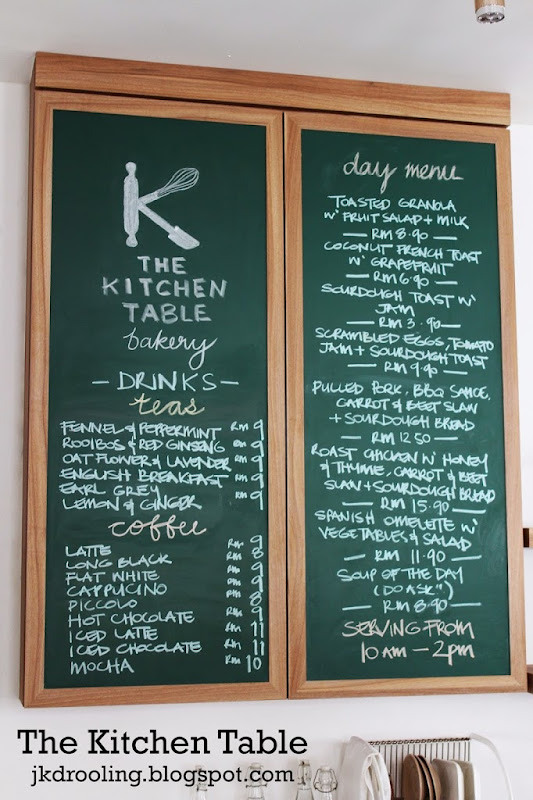 K
THE
KITCHEN
TABLE
bakery
- DRINKS -
teas
FENNEL & PEPPERMINT RM 9
ROOIBOS & RED GINSENG RM 9
OAT FLOWER & LAVENDER RM 9
ENGLISH BREAKFAST RM 9
EARL GREY RM 9
LEMON & GINGER
coffee
LATTE RM 9
LONG BLACK RM 8
FLAT WHITE RM 9
CAPPUCINO RM 9
PICCOLO RM 8
HOT CHOCOLATE RM 9
ICED LATTE RM 11
ICED CHOCOLATE RM 11
MOCHA RM 10
day menu
TOASTED GRANOLA
W' FRUIT SALAD + MILK
— RM 8.90 —
COCONUT FRENCH TOAST
W' GRAPEFRUIT
— RM 6.90 —
SOURDOUGH TOAST W'
JAM
— RM 3.90 —
SCRAMBLED EGGS, TOMATO
JAM + SOURDOUGH TOAST
— RM 9.90 —
PULLED PORK, BBQ SAUCE,
CARROT & BEET SLAW
+ SOURDOUGH BREAD
— RM 12.50 —
ROAST CHICKEN W' HONEY
& THYME, CARROT & BEET
SLAW + SOURDOUGH BREAD
— RM 15.90 —
SPANISH OMELETTE W'
VEGETABLES & SALAD
— RM 11.90 —
SOUP OF THE DAY
(DO ASK")
— RM 8.90 —
SERVING FROM
10AM — 2PM
The Kitchen Table
jkdrooling.blogspot.com